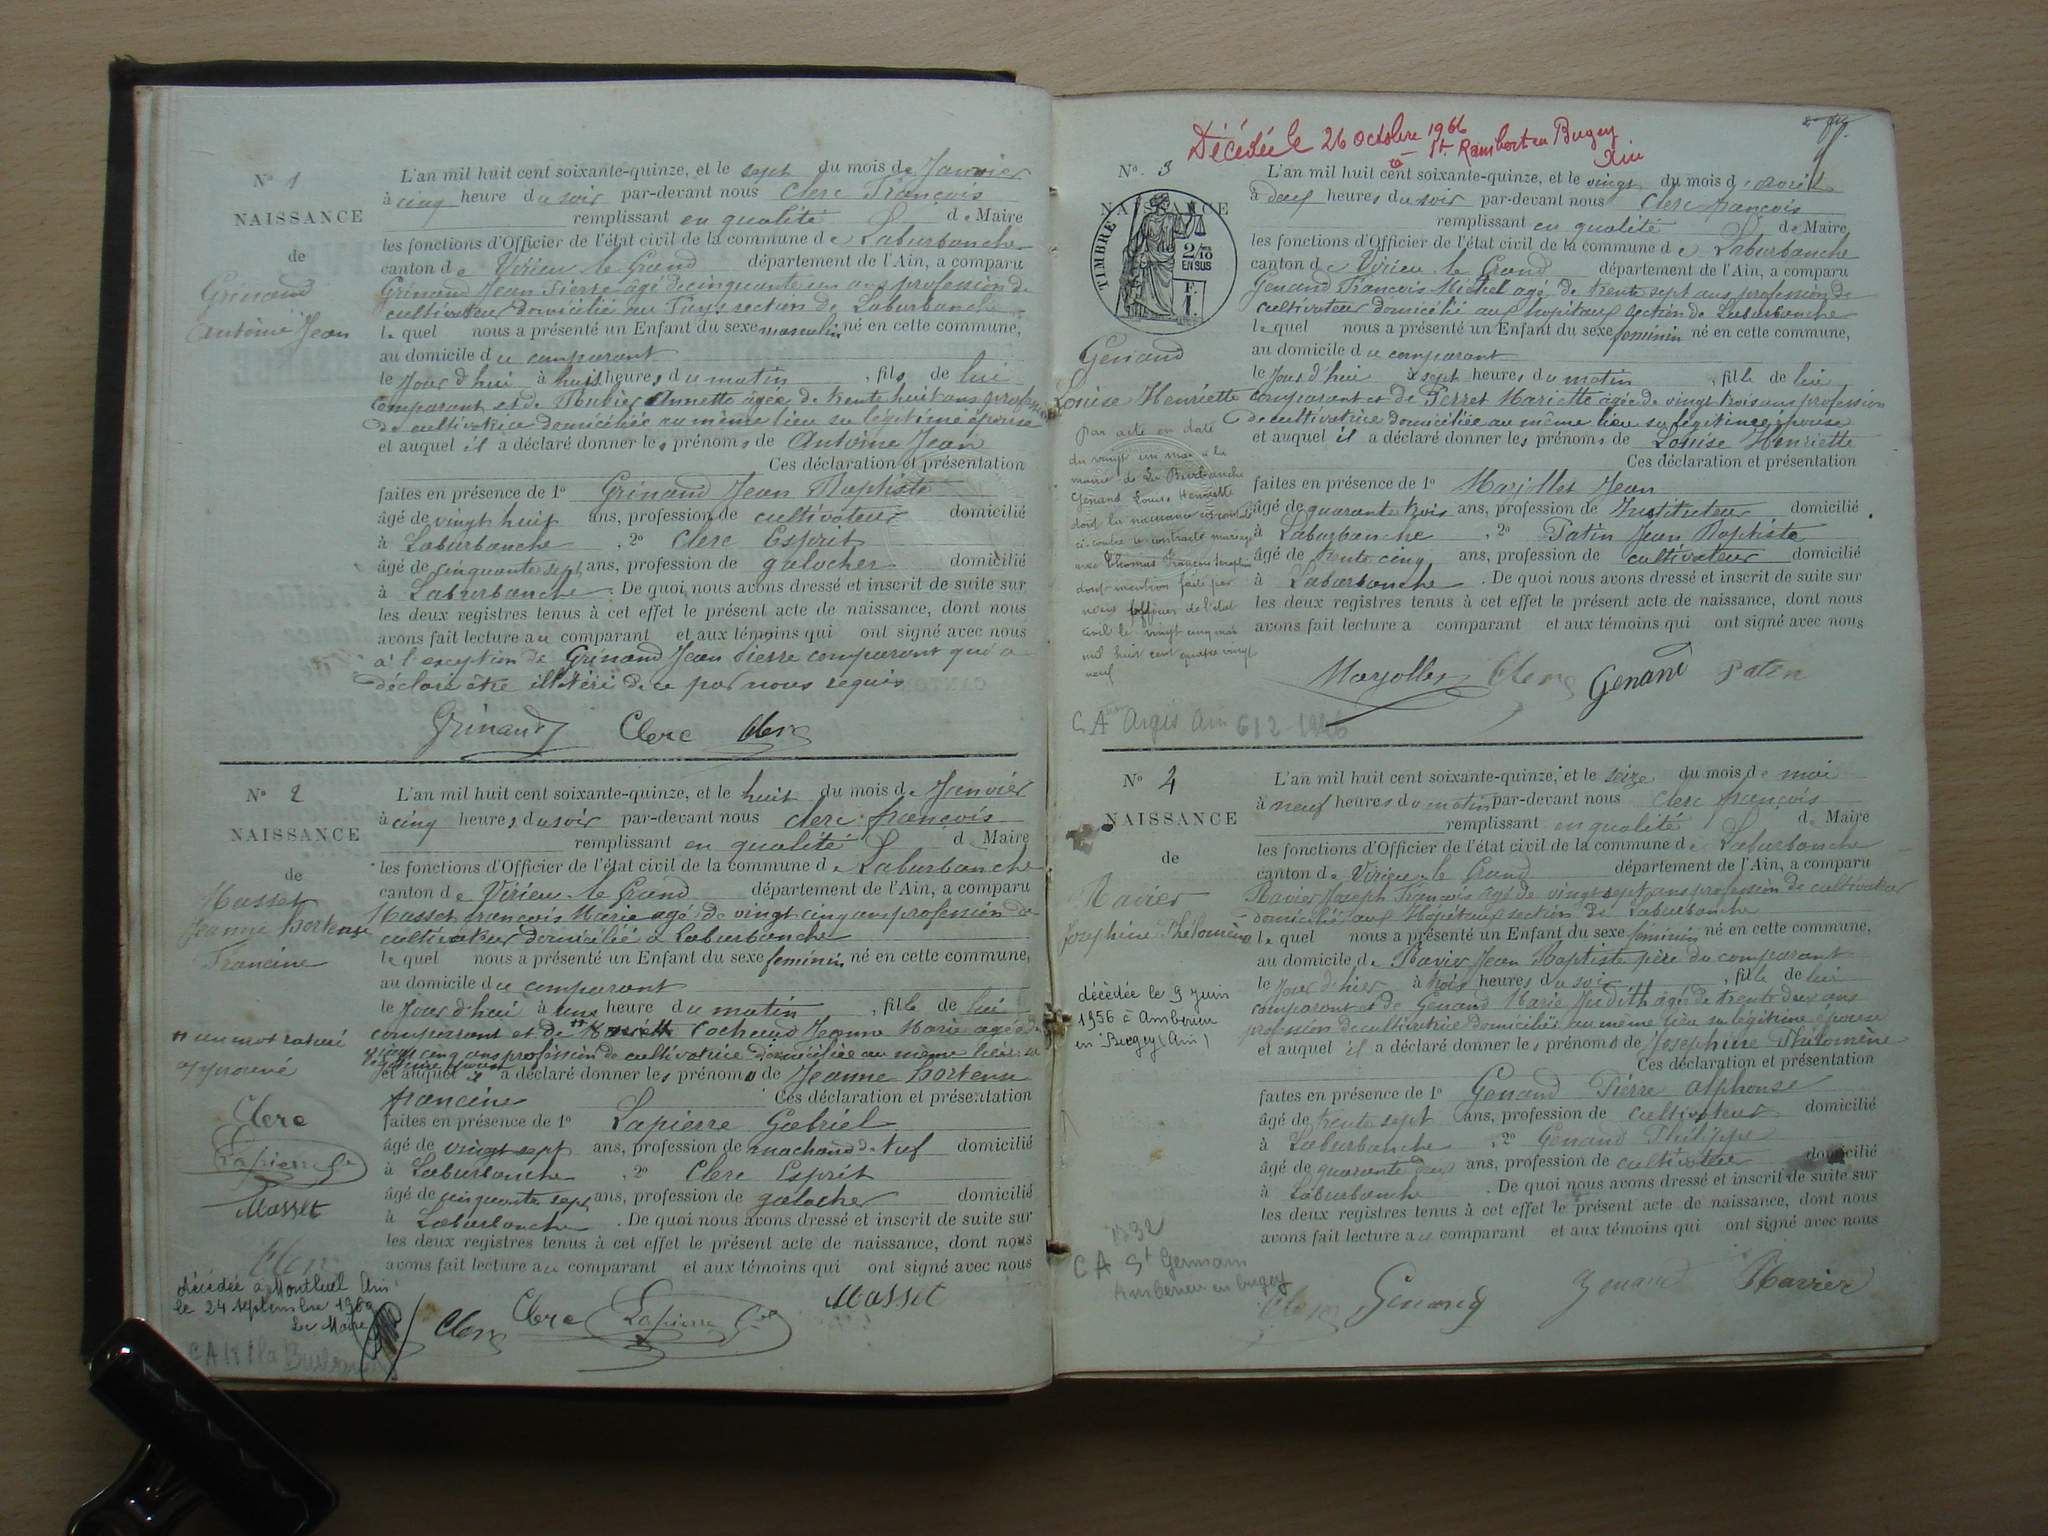 N° 1
NAISSANCE
de
Grinand
Antoine Jean
L'an mil huit cent soixante-quinze, et le sept du mois de Janvier
à cinq heure du soir par-devant nous Clerc François
remplissant en qualité de Maire
les fonctions d'Officier de l'état civil de la commune de Laburbanche
canton de Virieu le Grand département de l'Ain, a comparu
Grinand Jean Pierre âgé de cinquante un ans profession de
cultivateur domicilié au Fays section de Laburbanche
lequel nous a présenté un Enfant du sexe masculin né en cette commune,
au domicile du comparant
le Jour d'hui à huit heures du matin, fils de lui
comparant et de Annette âgée de trente huit ans profession
de cultivatrice domiciliée au même lieu sa légitime épouse
et auquel il a déclaré donner les prénoms de Antoine Jean
Ces déclaration et présentation
faites en présence de 1° Grinand Jean Baptiste
âgé de vingt huit ans, profession de cultivateur domicilié
à Laburbanche, 2° Clerc Esprit
âgé de cinquante sept ans, profession de galocher domicilié
à Laburbanche. De quoi nous avons dressé et inscrit de suite sur
les deux registres tenus à cet effet le présent acte de naissance, dont nous
avons fait lecture au comparant et aux témoins qui ont signé avec nous
à l'exception de Grinand Jean Pierre comparant qui a
déclaré être illétéré de ce par nous requis
Grinand Clerc Clerc
N° 2
NAISSANCE
de
Masset
Jeanne hortense
Francine
L'an mil huit cent soixante-quinze, et le huit du mois de Janvier
à cinq heures du soir par-devant nous Clerc françois
remplissant en qualité d Maire
les fonctions d'Officier de l'état civil de la commune de Laburbanche
canton de Virieu le Grand département de l'Ain, a comparu
Masset françois Marie âgé de vingt cinq ans profession de
cultivateur domicilié à Laburbanche
lequel nous a présenté un Enfant du sexe feminin né en cette commune,
au domicile du comparant
le Jour d'hui à une heure du matin, fille de lui
comparant et de Cochand Jeanne Marie agée de
vingt cinq ans profession de cultivatrice domiciliée au même lieu sa
légitime épouse
et auquel il a déclaré donner les prénoms de Jeanne hortense
francine Ces déclaration et présentation
faites en présence de 1° Lapierre Gabriel
âgé de vingt sept ans, profession de domicilié
à Laburbanche, 2° Clerc Esprit
âgé de cinquante sept ans, profession de galocher domicilié
à Laburbanche. De quoi nous avons dressé et inscrit de suite sur
les deux registres tenus à cet effet le présent acte de naissance, dont nous
avons fait lecture au comparant et aux témoins qui ont signé avec nous
un mot raturé
approuvé
Clerc
Lapierre
Masset
Clerc
décédée à Montluel Ain
le 24 septembre 1960
Le Maire
Clerc Clerc Lapierre Masset
Décédée le 26 octobre 1966
à St Rambert en Bugey
Ain
N°. 3
NAISSANCE
TIMBRE
2/10
EN SUS
F.
1.
Genand
Louise Henriette
Par acte en date
du vingt un mai à la
mairie de La Burbanche
Genand Louise Henriette
dont la naissance est constatée
ci-contre a contracté mariage
avec Thomas François Joseph
dont mention faite par
nous officier de l'état
civil le vingt cinq mai
mil huit cent quatre vingt
neuf
L'an mil huit cent soixante-quinze, et le vingt du mois d'avril
à deux heures du soir par-devant nous Clerc françois
remplissant en qualité de Maire
les fonctions d'Officier de l'état civil de la commune de Laburbanche
canton de Virieu le Grand département de l'Ain, a comparu
Genand François Michel agé de trente sept ans profession de
cultivateur domicilié aux hopitaux section de Laburbanche
lequel nous a présenté un Enfant du sexe feminin né en cette commune,
au domicile du comparant
le Jour d'hui à sept heures du matin, fille de lui
comparant et de Perret Mariette âgée de vingt trois ans profession
de cultivatrice domiciliée au même lieu sa légitime épouse
et auquel il a déclaré donner les prénoms de Louise Henriette
Ces déclaration et présentation
faites en présence de 1° Marjollet Jean
âgé de quarante trois ans, profession de Instituteur domicilié
à Laburbanche, 2° Patin Jean Baptiste
âgé de trente cinq ans, profession de cultivateur domicilié
à Laburbanche. De quoi nous avons dressé et inscrit de suite sur
les deux registres tenus à cet effet le présent acte de naissance, dont nous
avons fait lecture a comparant et aux témoins qui ont signé avec nous
Marjollet Clerc Genand Patin
C A Argis Ain
N° 4
NAISSANCE
de
Ravier
Josephine Philomène
décédée le 9 Juin
1956 à Ambérieu
en Bugey (Ain)
L'an mil huit cent soixante-quinze, et le seize du mois de mai
à neuf heures du matin par-devant nous Clerc françois
remplissant en qualité d Maire
les fonctions d'Officier de l'état civil de la commune de Laburbanche
canton de Virieu le Grand département de l'Ain, a comparu
Ravier Joseph François âgé de vingt sept ans profession de cultivateur
domicilié aux Hôpitaux section de Laburbanche
lequel nous a présenté un Enfant du sexe féminin né en cette commune,
au domicile de Ravier Jean Baptiste père du comparant
le Jour d'hier à trois heures du soir, fille de lui
comparant et de Genand Marie Judith âgée de trente deux ans
profession de cultivatrice domiciliée au même lieu sa légitime épouse
et auquel il a déclaré donner les prénoms de Josephine Philomène
Ces déclaration et présentation
faites en présence de 1° Genand Pierre alphonse
âgé de trente sept ans, profession de cultivateur domicilié
à Laburbanche, 2° Genand Philippe
âgé de quarante deux ans, profession de cultivateur domicilié
à Laburbanche. De quoi nous avons dressé et inscrit de suite sur
les deux registres tenus à cet effet le présent acte de naissance, dont nous
avons fait lecture au comparant et aux témoins qui ont signé avec nous
C A St Germain
Ambérieu en bugey
Clerc Genand Genand Ravier